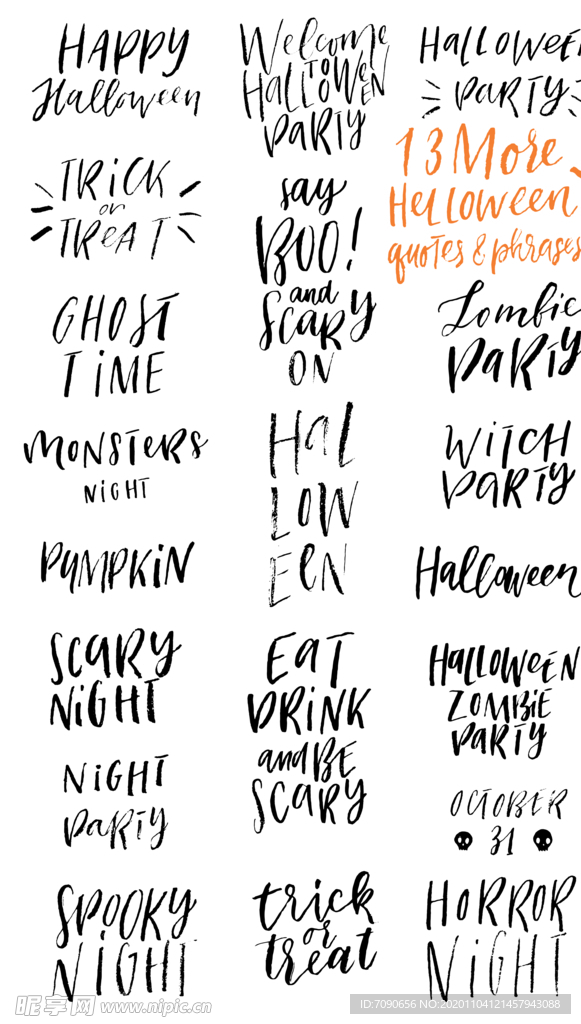 HAPPY
Halloween
TRiCK
or
TReAT
GHOST
TiME
MONSTERS
NiGHT
PUMPKiN
SCARY
NiGHT
NiGHT
PaRTY
SPOOKY
NiGHT
Welcome
TO
HALLOWeeN
PaRTY
say
BOO!
and
SCaRY
ON
Hal
LOW
EeN
EaT
DRiNK
and BE
SCARY
trick
or
treat
HaLLOWEEN
PaRTY
13 More
HeLLOWeen
quoTes & phrases
Zombie
PaRTY
WiTCH
PaRTY
Halloween
HaLLOWEEN
ZOMBiE
PaRTY
OCTOBER
31
HORROR
NiGHT
昵享网 www.nipic.cn
ID:7090656 NO:20201104121457943088